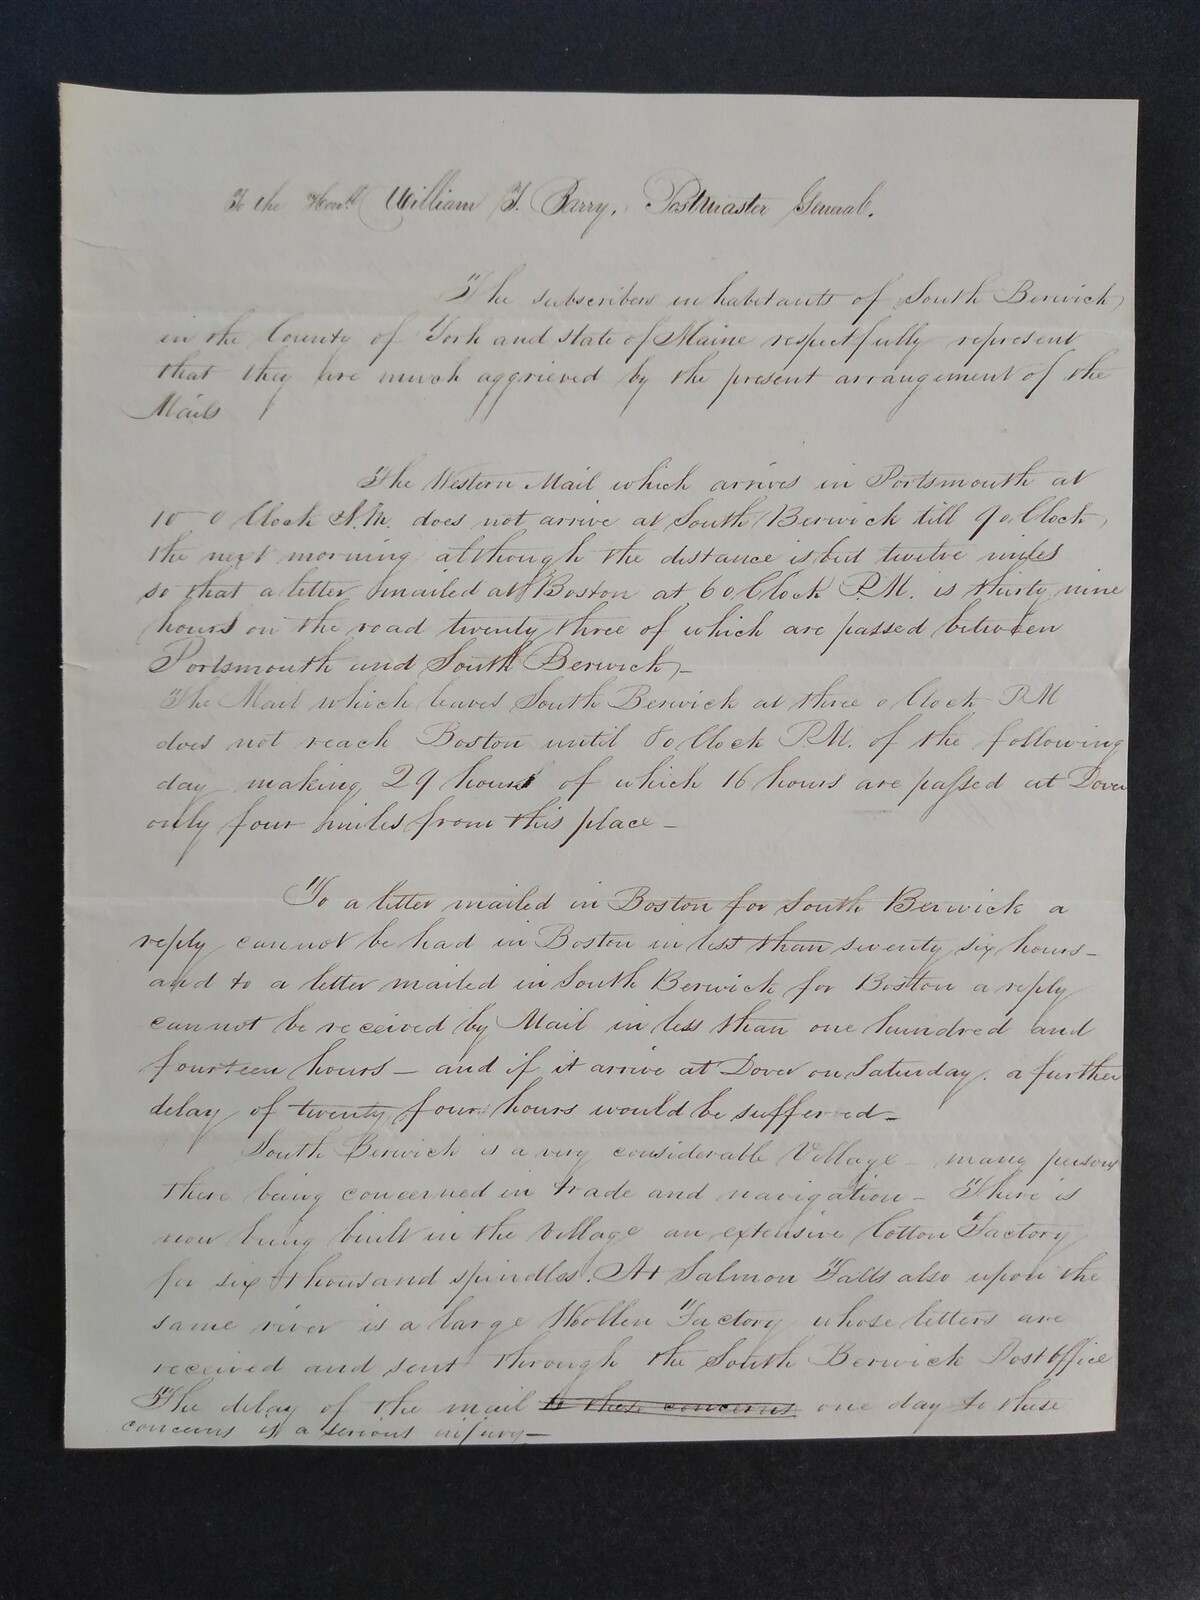 To the Honl. William T. Barry, Postmaster General.
The subscribers inhabitants of South Berwick
in the County of York and state of Maine respectfully represent
that they are much aggrieved by the present arrangement of the
Mails
The Western Mail which arrives in Portsmouth at
10 o Clock A.M. does not arrive at South Berwick till 9 o Clock
the next morning although the distance is but twelve miles
so that a letter mailed at Boston at 6 o Clock P.M. is thirty nine
hours on the road twenty three of which are passed between
Portsmouth and South Berwick –
The Mail which leaves South Berwick at three o Clock P.M
does not reach Boston until 8 o Clock P.M. of the following
day making 29 hours of which 16 hours are passed at Dover
only four miles from this place –
To a letter mailed in Boston for South Berwick a
reply cannot be had in Boston in less than seventy six hours –
and to a letter mailed in South Berwick for Boston a reply
cannot be received by Mail in less than one hundred and
fourteen hours – and if it arrive at Dover on Saturday. a further
delay of twenty four hours would be suffered –
South Berwick is a very considerable Village – many persons
there being concerned in trade and navigation – There is
now being built in the Village an extensive Cotton Factory
for six thousand spindles. At Salmon Falls also upon the
same river is a large Wollen Factory whose letters are
received and sent through the South Berwick Post Office
The delay of the mail to these concerns one day to these
concerns is a serious injury –